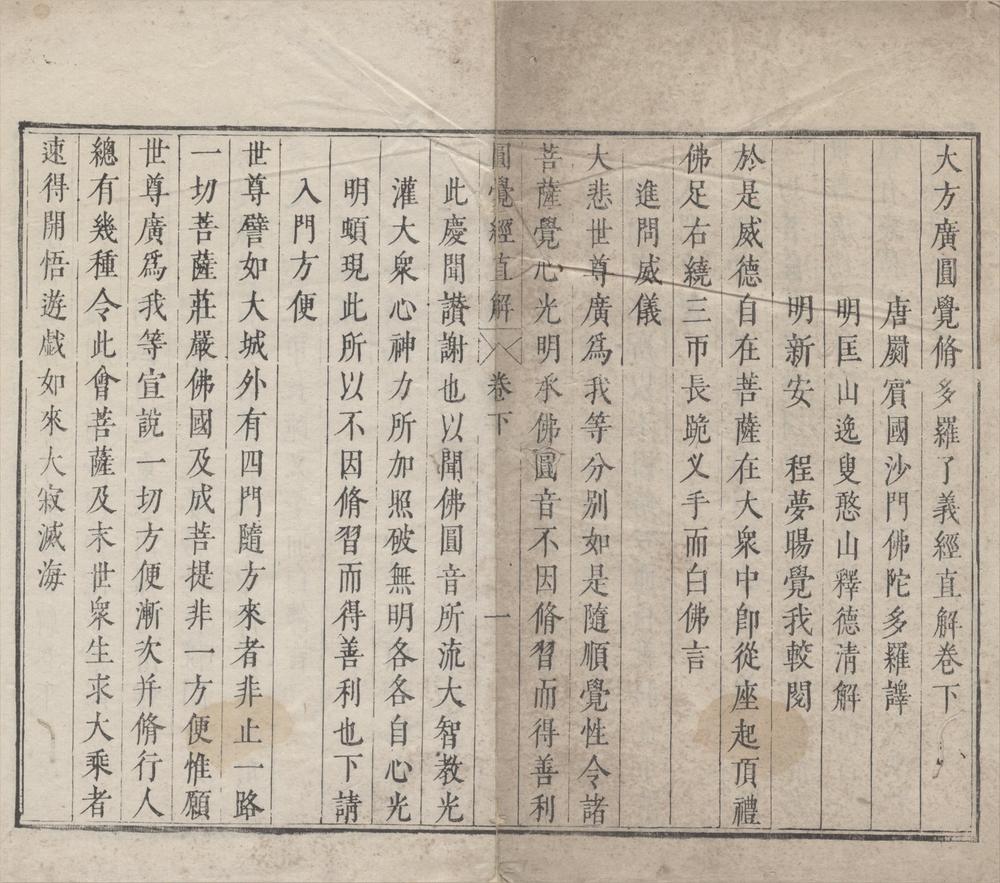 大方廣圓覺脩多羅了義經直解卷下
唐罽賓國沙門佛陀多羅譯
明匡山逸叟憨山釋德清解
明新安　程夢暘覺我較閱
於是威德自在菩薩在大衆中卽從座起頂禮
佛足右繞三帀長跪义手而白佛言
進問威儀
大悲世尊廣爲我等分别如是隨順覺性令諸
菩薩覺心光明承佛圓音不因脩習而得善利
圓覺經直解　卷下　一
此慶聞讚謝也以聞佛圓音所流大智教光
灌大衆心神力所加照破無明各各自心光
明頓現此所以不因脩習而得善利也下請
入門方便
世尊譬如大城外有四門隨方來者非止一路
一切菩薩莊嚴佛國及成菩提非一方便惟願
世尊廣爲我等宣說一切方便漸次并脩行人
總有幾種令此會菩薩及末世衆生求大乘者
速得開悟遊戲如來大寂滅海